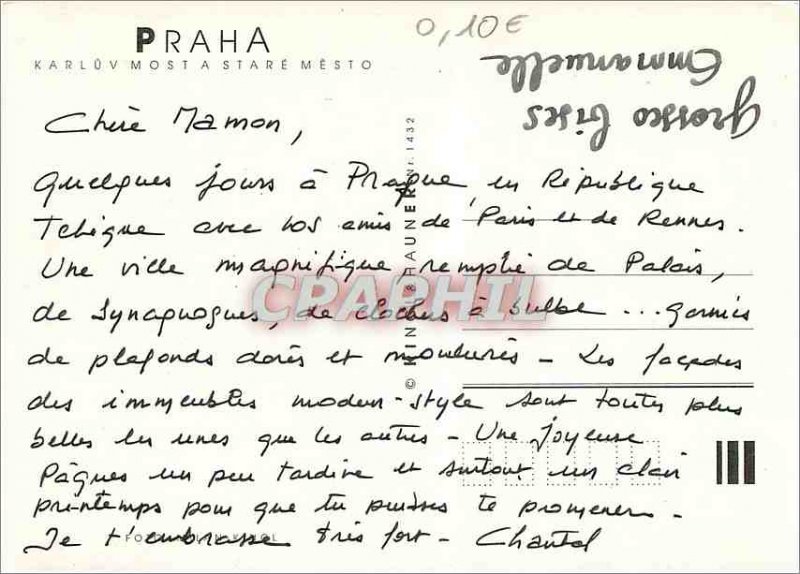 PRAHA
KARLŮV MOST A STARÉ MĚSTO
0,10€
Grosses bises
Emmanuelle
Chère Maman,
quelques jours à Prague, en République
Tchèque avec nos amis de Paris et de Rennes.
Une ville magnifique, remplie de Palais,
de Synagogues, de clochers à bulbe ... garnies
de plafonds dorés et moulurés - Les façades
des immeubles modern-style sont toutes plus
belles les unes que les autres - Une Joyeuse
Pâques un peu tardive et surtout un clair
printemps pour que tu puisses te promener -
Je t'embrasse très fort - Chantal
© KINA BRAUNER Nr. 1432
CPAPHIL